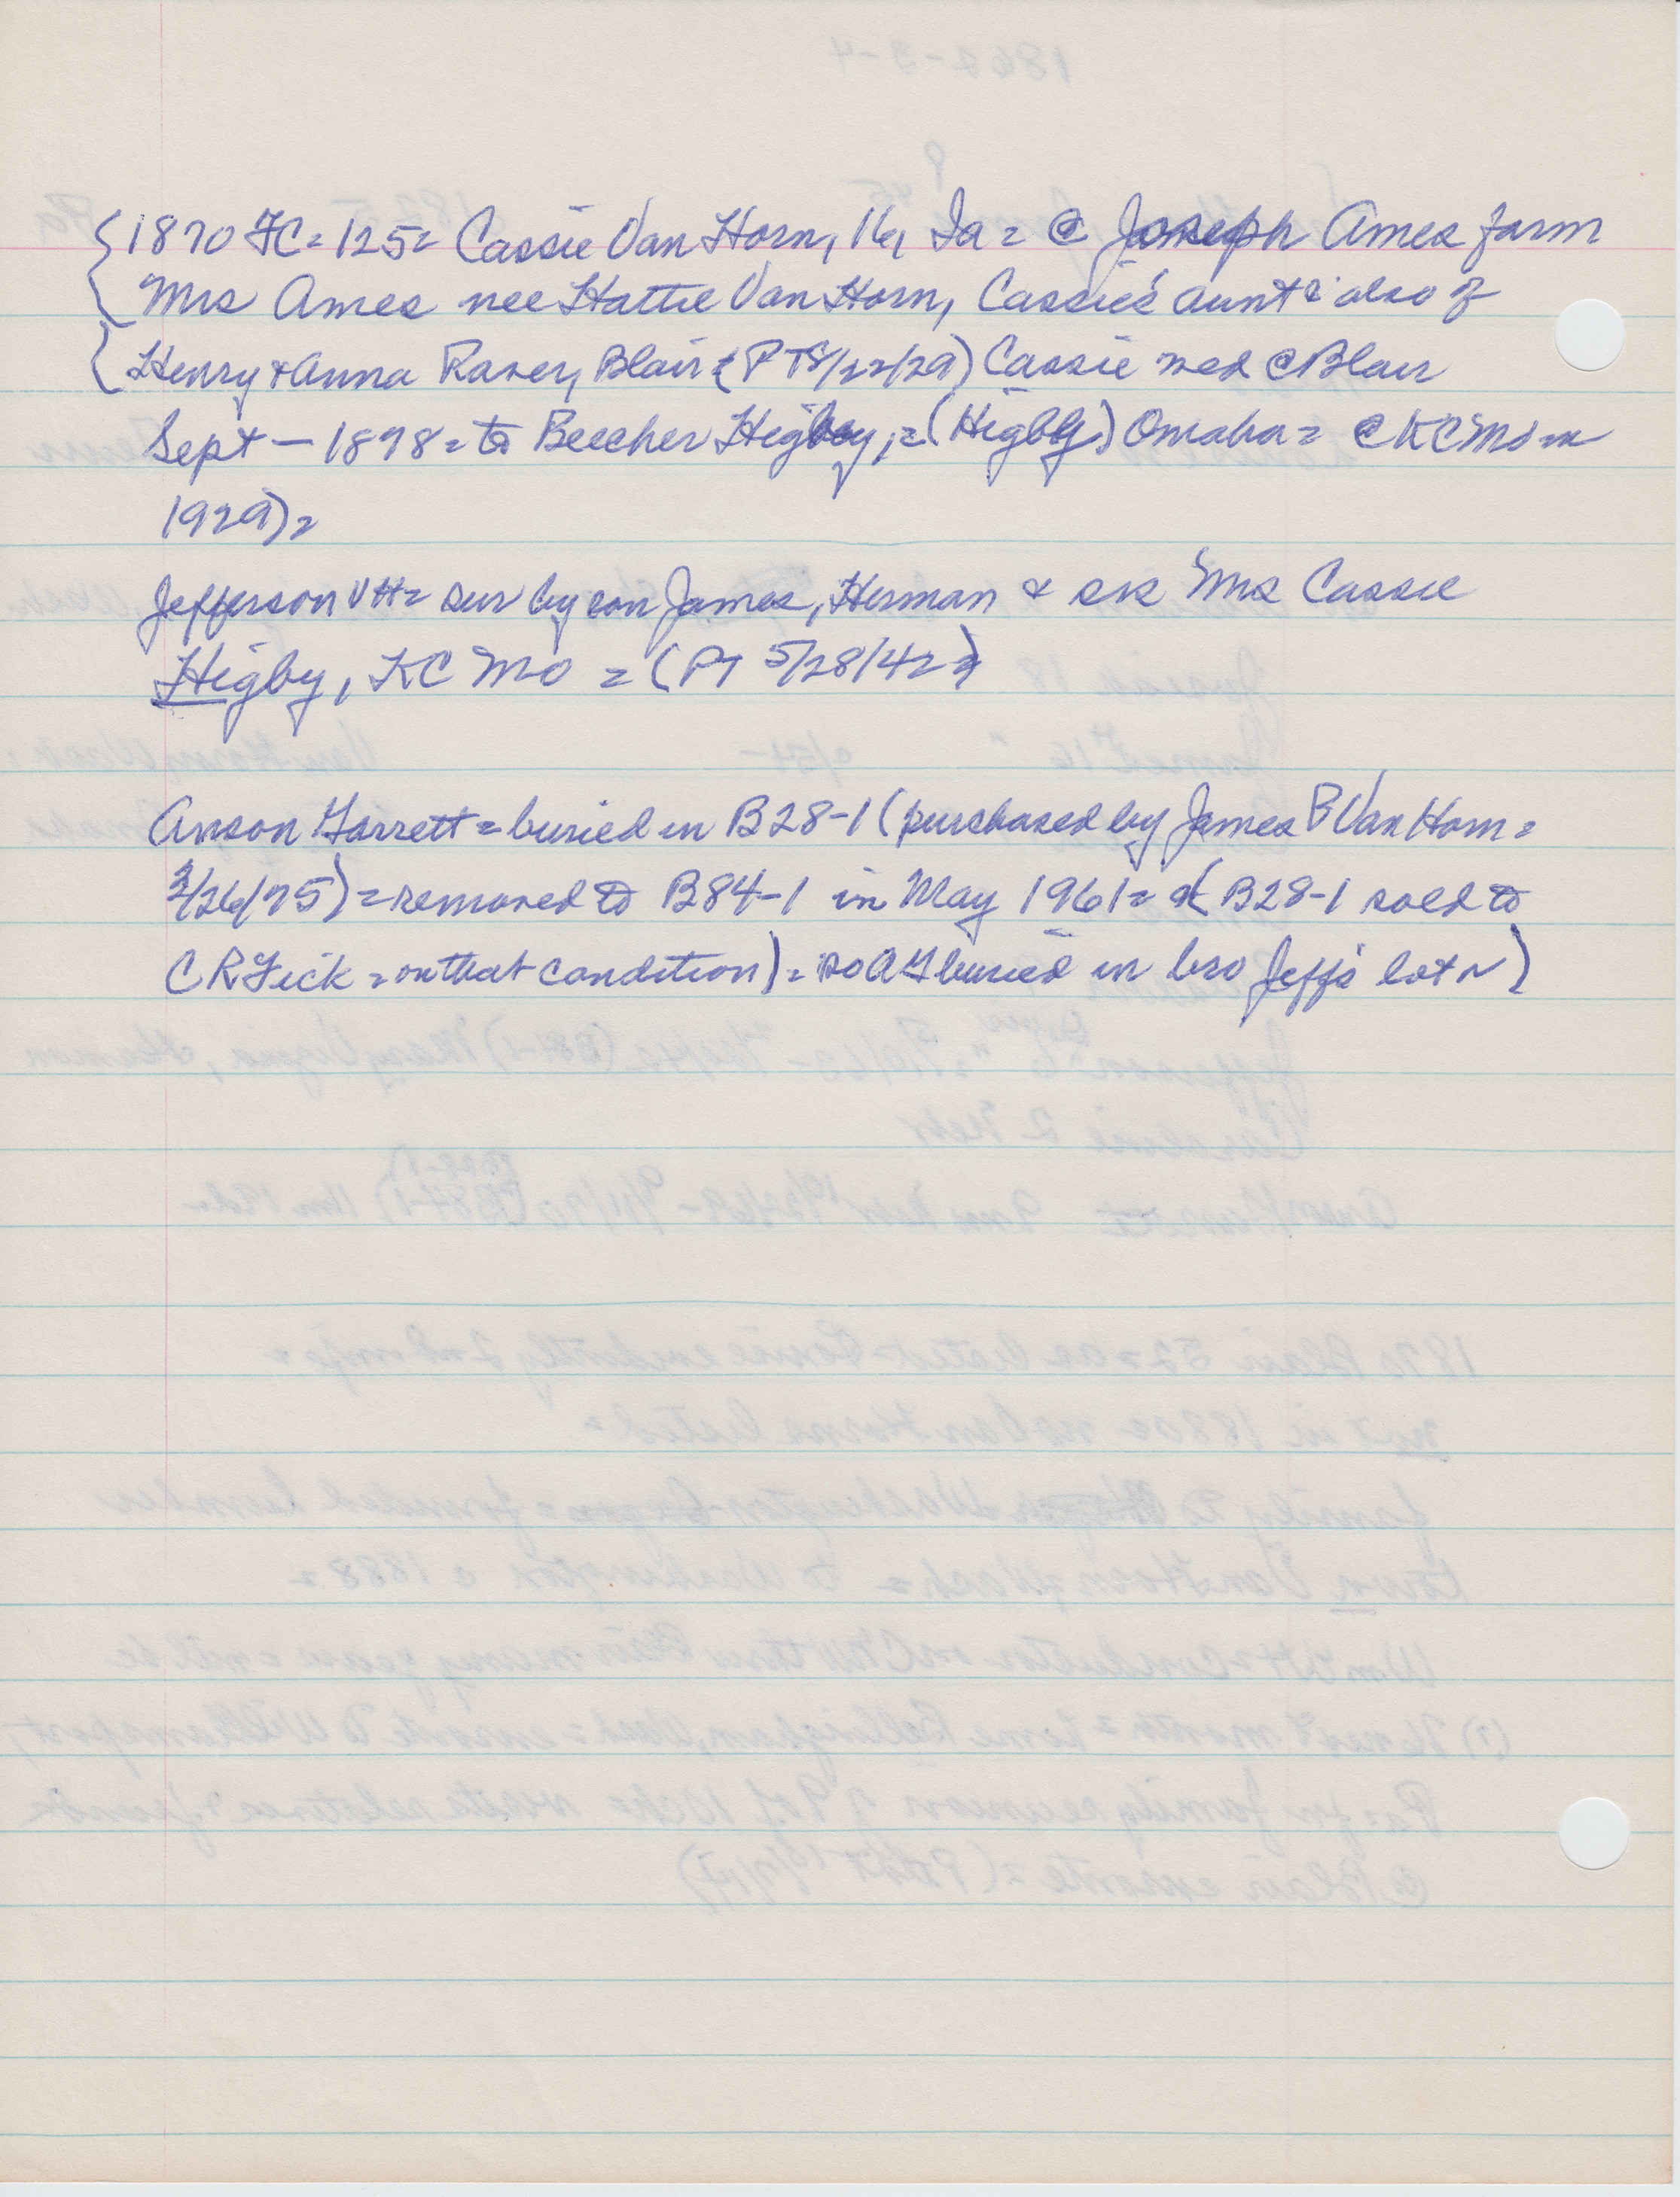 1870 FC = 125 = Cassie Van Horn, 16, Ia = @ Joseph Ames farm
Mrs Ames nee Hattie Van Horn, Cassie's aunt & also of
Henry & Anna Raver, Blair = (PT 8/22/29) Cassie med @ Blair
Sept — 1898 = to Beecher Higbey, = (Higby) Omaha = @ KC Mo in
1929) =
Jefferson VH = sur by son James, Herman & sis Mrs Cassie
Higby, KC Mo = (PT 5/28/42)
Anson Garrett = buried in B28-1 (purchased by James B Van Horn =
/26/75) = removed to B84-1 in May 1961 = (B28-1 sold to
C R Fick = on that condition) = so AG buried in bro Jeff's lot )